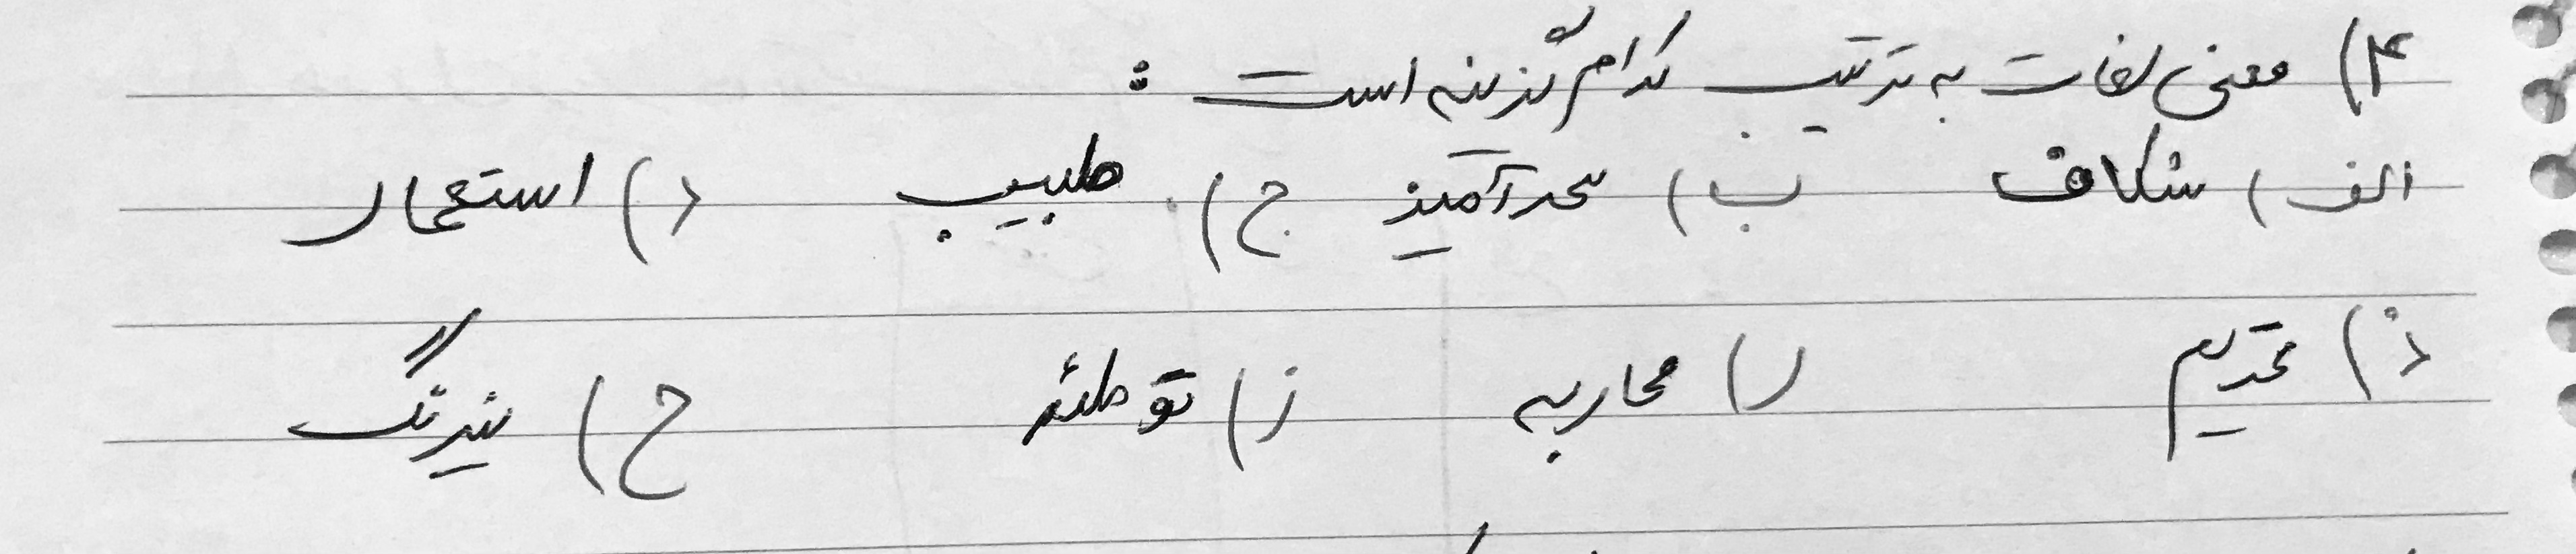 ۴) معنی لغات به ترتیب کدام گزینه است :
الف) شکاف ب) سحرآمیز ج) طبیب د) استعمار
ذ) تحریم ر) محاربه ز) توطئه ح) نیرنگ